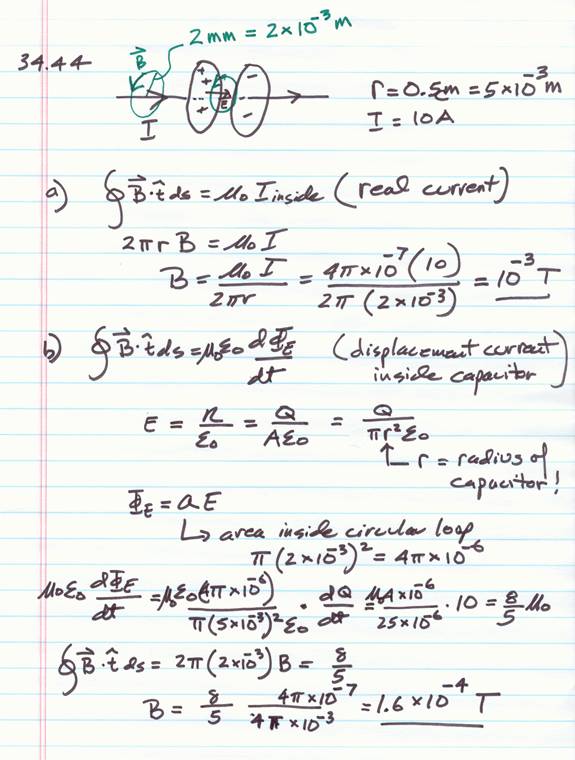 2mm = 2×10⁻³ m
34.44
B⃗
+ + + + − −
E
I
r = 0.5cm = 5×10⁻³ m
I = 10A
a) ∮ B⃗·t̂ ds = μ₀ I inside (real current)
2πr B = μ₀ I
B = μ₀ I / 2πr = 4π×10⁻⁷ (10) / 2π (2×10⁻³) = 10⁻³ T
b) ∮ B⃗·t̂ ds = μ₀ε₀ dΦ_E / dt (displacement current inside capacitor)
E = η / ε₀ = Q / Aε₀ = Q / πr²ε₀
r = radius of
capacitor!
Φ_E = a E
↳ area inside circular loop
π(2×10⁻³)² = 4π×10⁻⁶
μ₀ε₀ dΦ_E / dt = μ₀ε₀(4π×10⁻⁶) / π(5×10⁻³)² ε₀ · dQ / dt = μ₀4×10⁻⁶ / 25×10⁻⁶ · 10 = 8/5 μ₀
∮ B⃗·t̂ ds = 2π(2×10⁻³) B = 8/5
B = 8/5 4π×10⁻⁷ / 4π×10⁻³ = 1.6×10⁻⁴ T